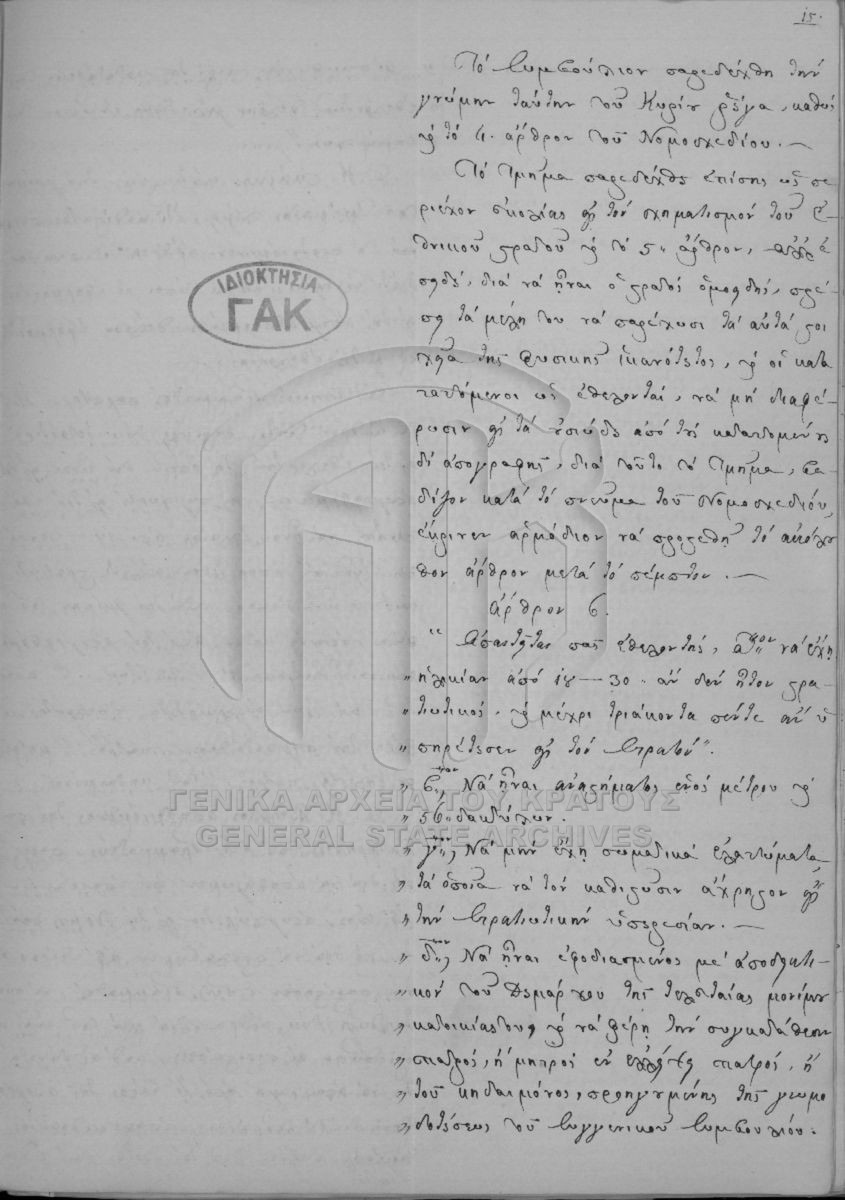 15.
Τὸ Συμβούλιον παρεδέχθη τὴν
γνώμην ταύτην τοῦ Κυρίου Ῥήγα, καθὼς
καὶ τὸ 4. ἄρθρον τοῦ Νομοσχεδίου. —
Τὸ Τμῆμα παρεδέχθη ἐπίσης ὡς πε
ριέχον τὸν σχηματισμὸν τοῦ Ἐ
θνικοῦ στρατοῦ καὶ τὸ 5ον ἄρθρον, ἀλλ' ἐ
πειδὴ, διὰ νὰ ἦναι ὁ στρατὸς ὁμοειδὴς, πρέ
πει τὰ μέλη του νὰ παρέχωσι τὰ αὐτὰ στοι
χεῖα τῆς φυσικῆς ἱκανότητος, καὶ οἱ κατα
ταττόμενοι ὡς ἐθελονταὶ, νὰ μὴ διαφέ
ρωσιν εἰς τὰ οὐσιώδη ἀπὸ τοὺς καταττομένους
δι' ἀπογραφῆς, διὰ τοῦτο τὸ Τμῆμα, βα
δίζον κατὰ τὸ πνεῦμα τοῦ Νομοσχεδίου,
ἔκρινεν ἁρμόδιον νὰ προστεθῇ τὸ ἀκόλου
θον ἄρθρον μετὰ τὸ πέμπτον. —
ἄρθρον 6.
" Ἀπαιτεῖται πᾶς ἐθελοντὴς, αον νὰ ἔχῃ
" ἡλικίαν ἀπὸ 18—30. ἂν δὲν ἦτον στρα
" τιωτικὸς, καὶ μέχρι τριάκοντα πέντε ἂν ὑ
" πηρέτησεν εἰς τὸν Στρατόν".
" βον, Νὰ ἦναι ἀναστήματος ἑνὸς μέτρου καὶ
" 56 δακτύλων.
" γον, Νὰ μὴν ἔχῃ σωματικὰ ἐλαττώματα,
" τὰ ὁποῖα νὰ τὸν καθιστῶσιν ἄχρηστον εἰς
" τὴν Στρατιωτικὴν ὑπηρεσίαν. —
" δον, Νὰ ἦναι ἐφοδιασμένος μὲ ἀποδεικτι
" κὸν τοῦ Δημάρχου τῆς τελευταίας μονίμου
" κατοικίας του, καὶ νὰ φέρῃ τὴν συγκατάθεσιν
" πατρὸς, ἢ μητρὸς ἐν ἐλλείψει πατρὸς, ἢ
" τοῦ κηδαιμόνος, προηγουμένης τῆς γνωμο
" δοτήσεως τοῦ Συγγενικοῦ Συμβουλίου.
ΙΔΙΟΚΤΗΣΙΑ
ΓΑΚ
ΓΕΝΙΚΑ ΑΡΧΕΙΑ ΤΟΥ ΚΡΑΤΟΥΣ
GENERAL STATE ARCHIVES